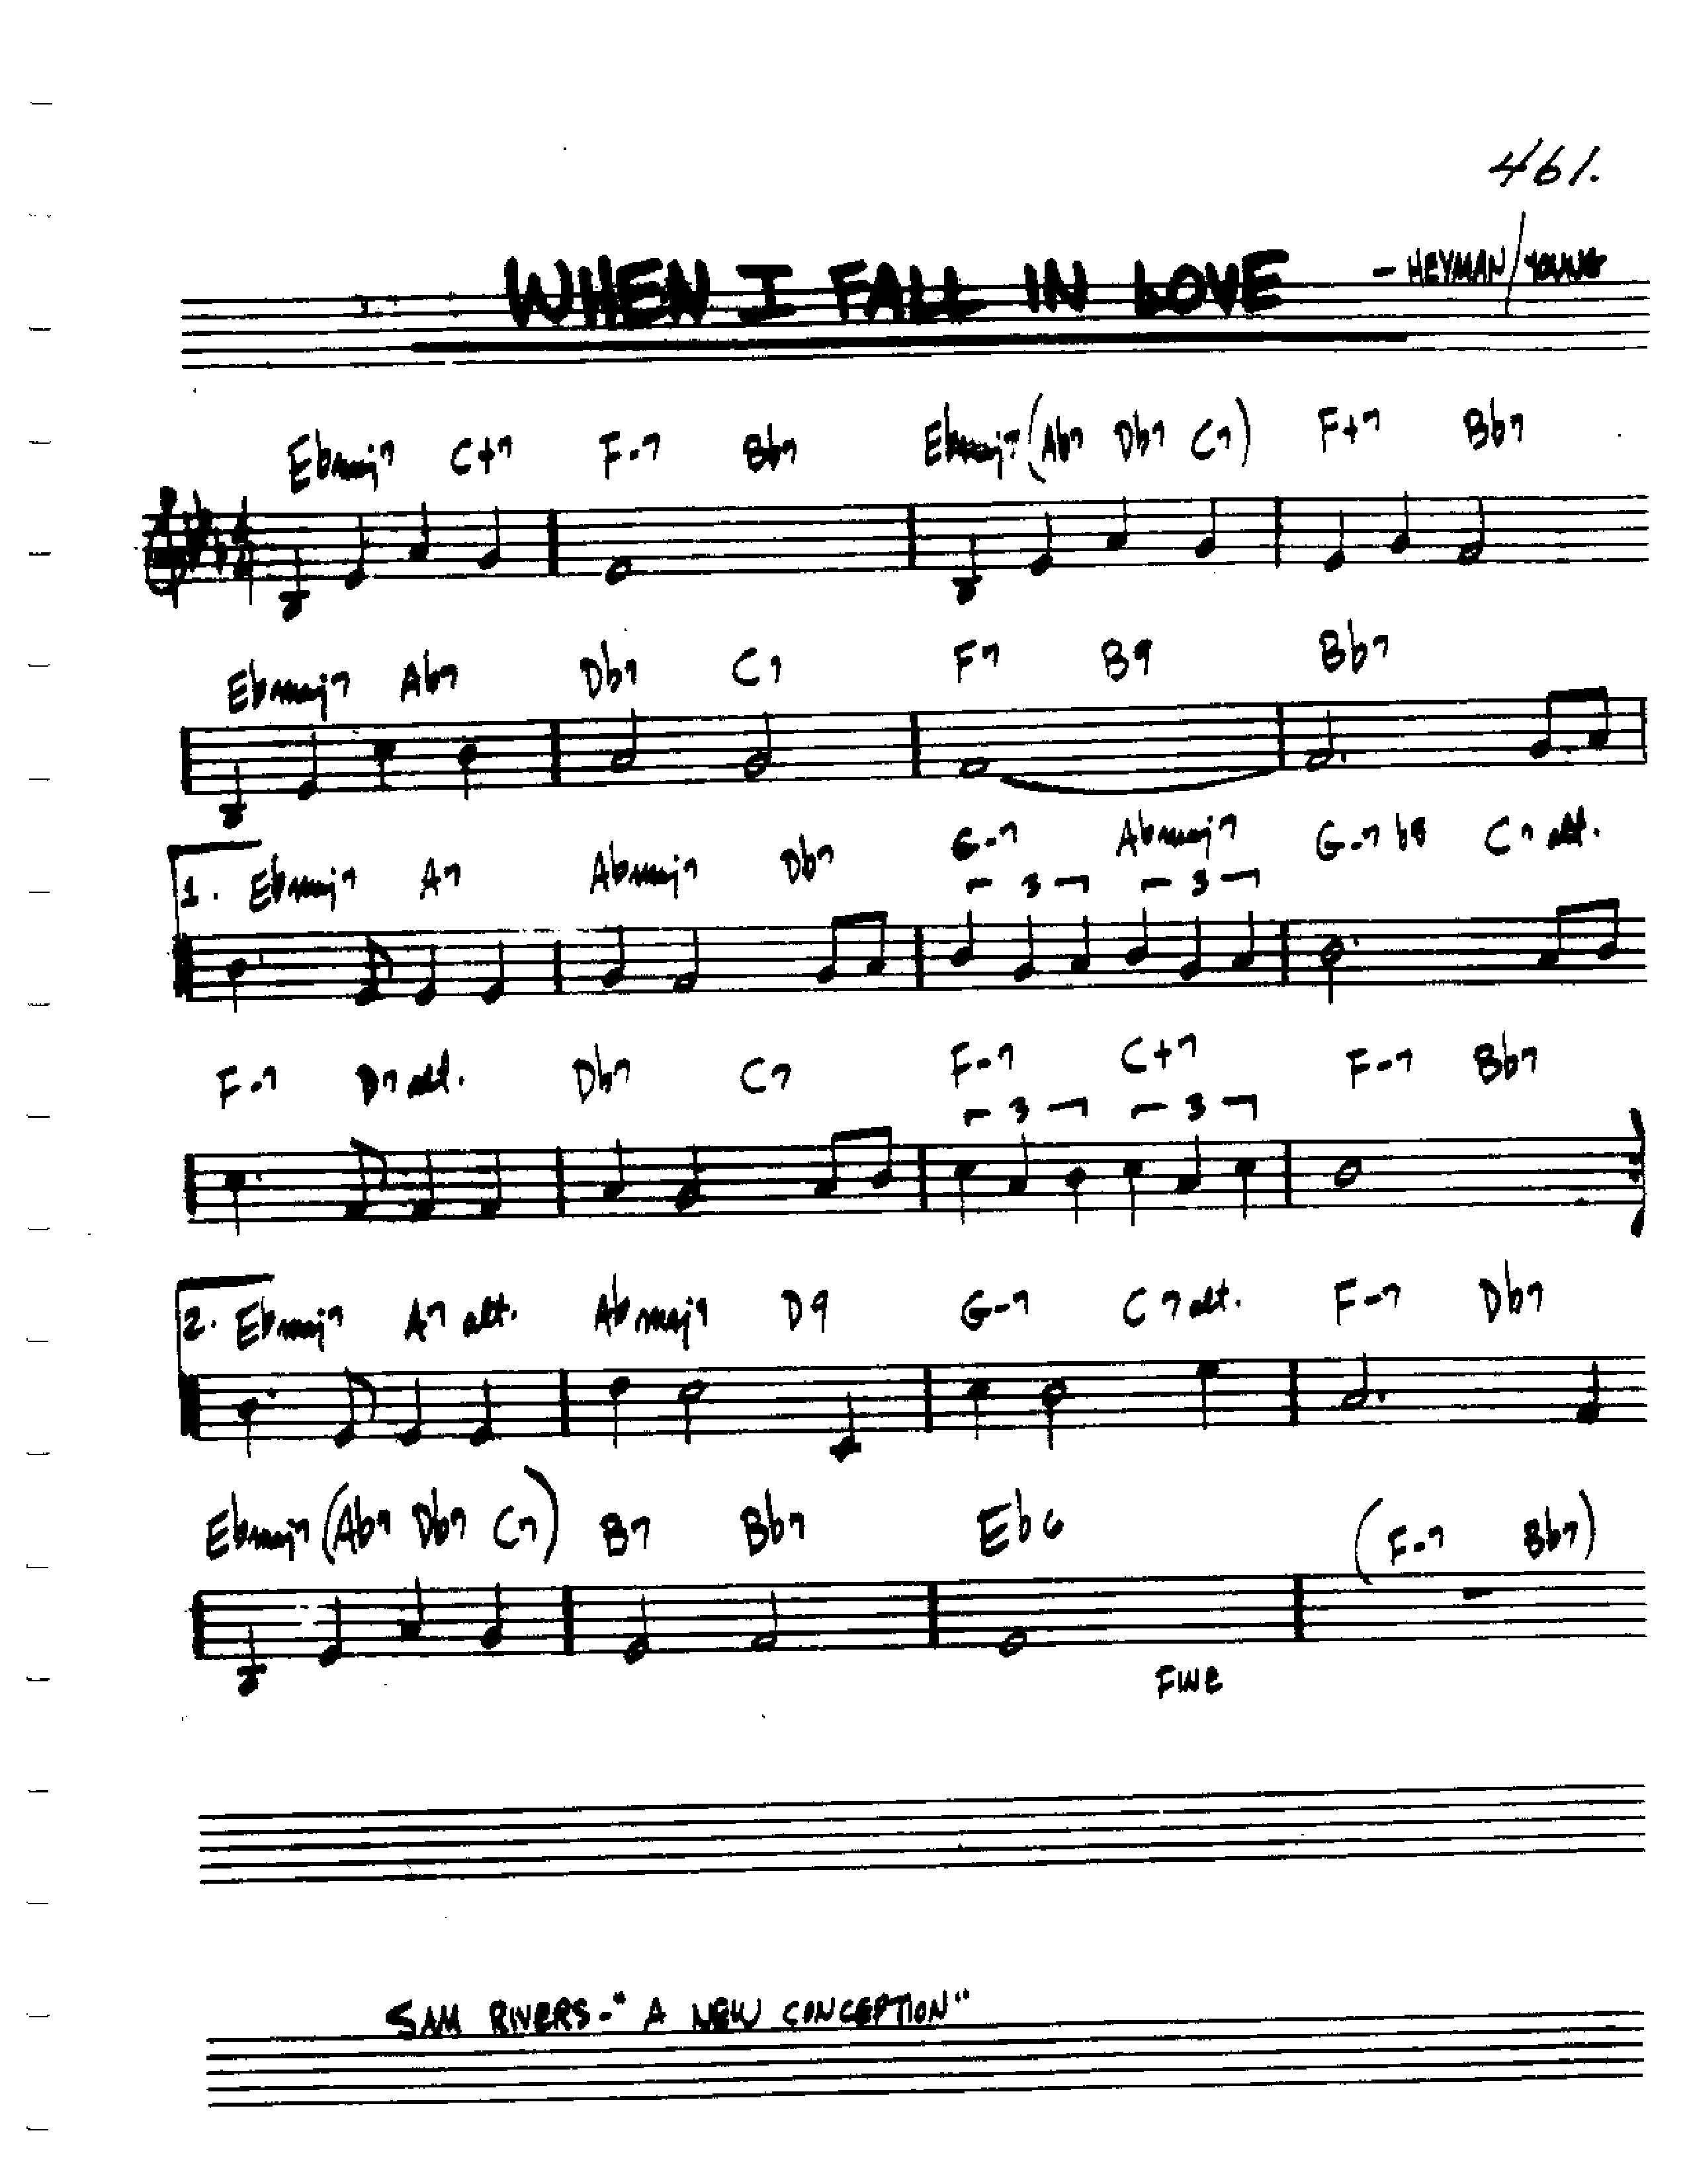 461.
WHEN I FALL IN LOVE - HEYMAN/YOUNG
Ebmaj7 C+7 F-7 Bb7 Ebmaj7 (Ab7 Db7 C7) F+7 Bb7
Ebmaj7 Ab7 Db7 C7 F7 B9 Bb7
1. Ebmaj7 A7 Abmaj7 Db7 G-7 Abmaj7 G-7 b5 C7 alt.
3 3
F-7 D7 alt. Db7 C7 F-7 C+7 F-7 Bb7
3 3
2. Ebmaj7 A7 alt. Abmaj7 D9 G-7 C7 alt. F-7 Db7
Ebmaj7 (Ab7 Db7 C7) B7 Bb7 Eb6 (F-7 Bb7)
FINE
SAM RIVERS - "A NEW CONCEPTION"